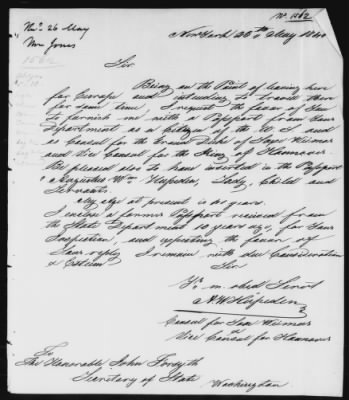 No. 1562
Rec'd 26 May
Mr Jones
1562
New York 25th May 1840
Sir
Being on the Point of leaving here
for Europe and intending to travel there
for some time, I request the favor of You
to furnish me with a Passport from Your
Department as a Citizen of the U.S. and
as Consul for the Grand Duke of Saxe Weimar
and Vice Consul for the King of Hannover.
Be pleased also to have inserted in the Passport
Augustus Wm Hesseden, Lady, Child and
Servants.
My age at present is 40 years.
I enclose a former Passport received from
the State Department 10 years ago, for Your
Inspection, and expecting the favor of
Your reply I remain with due Consideration
& Esteem
Sir
Yr. m. obed Servt
Consul for Saxe Weimar
&
Vice Consul for Hannover
To
The Honorable John Forsyth
Secretary of State
Washington